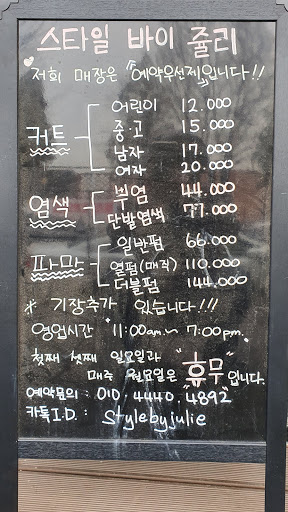 스타일 바이 줄리
저희 매장은 "예약우선제"입니다!!
커트
어린이 12.000
중·고 15.000
남자 17.000
여자 20.000
염색
뿌염 44.000
단발염색 77.000
파마
일반펌 66.000
열펌(매직) 110.000
더블펌 144.000
* 기장추가 있습니다!!!
영업시간 11:00am.~ 7:00pm.
첫째 셋째 일요일과
매주 월요일은 "휴무"입니다.
예약문의 : 010. 4440. 4892
카톡I.D. : stylebyjulie